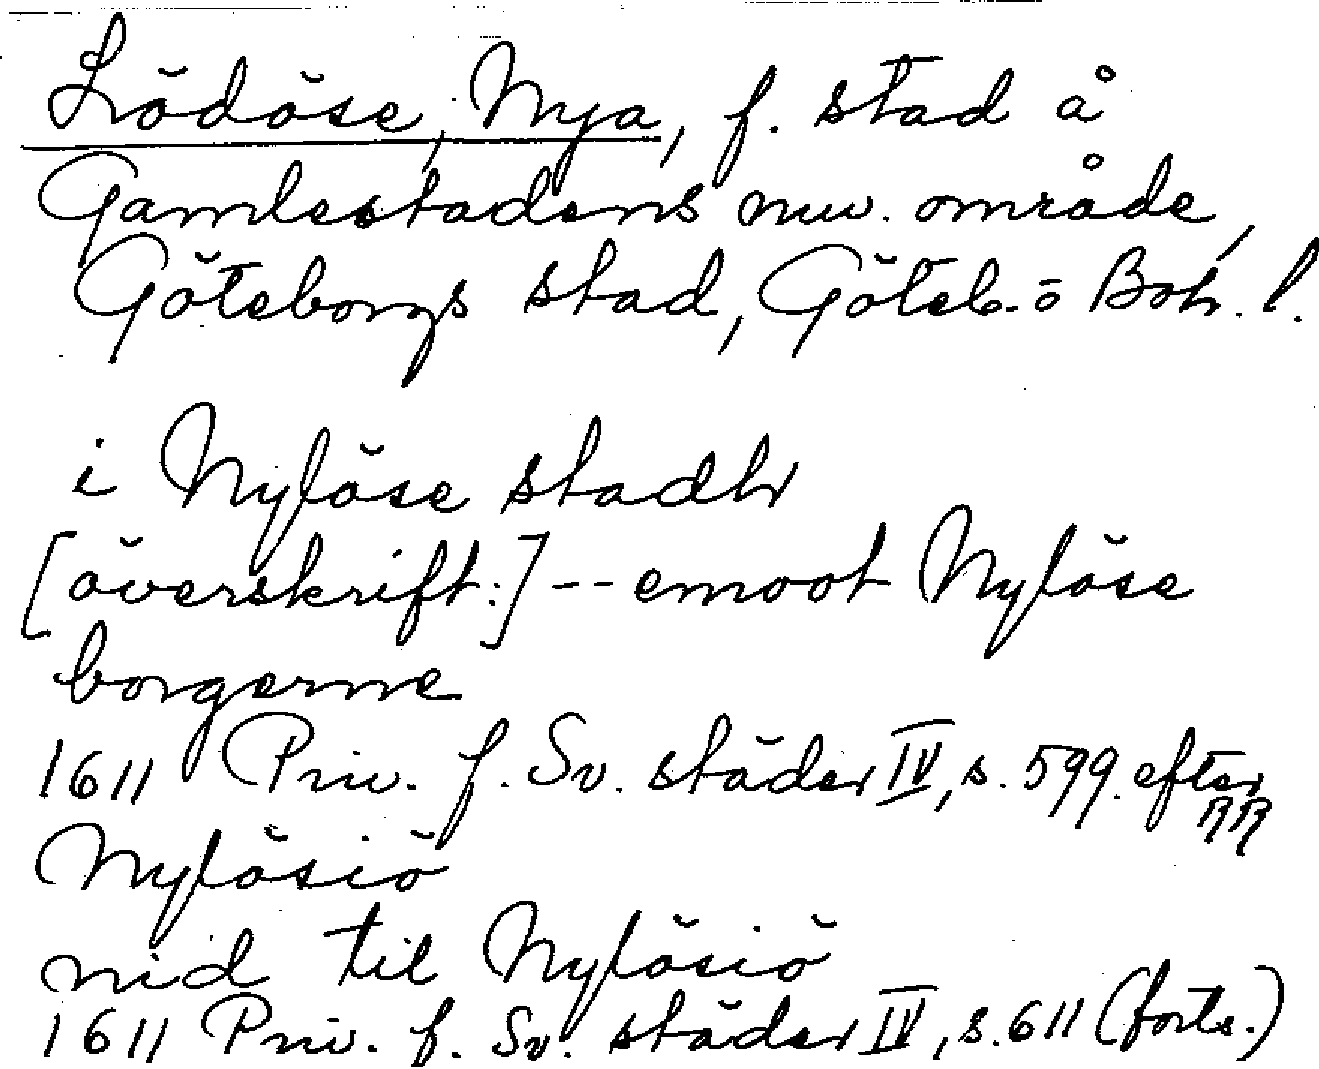 Lödöse, Nya, f. stad å
Gamlestadens nuv. område,
Göteborgs stad, Göteb. o Boh. l.
i Nylöse stadh
[överskrift:] -- emoot Nylöse
borgerne
1611 Priv. f. Sv. städer IV, s. 599. efter
RR
Nylösiö
nid til Nylösiö
1611 Priv. f. Sv. städer IV, s. 611 (forts.)